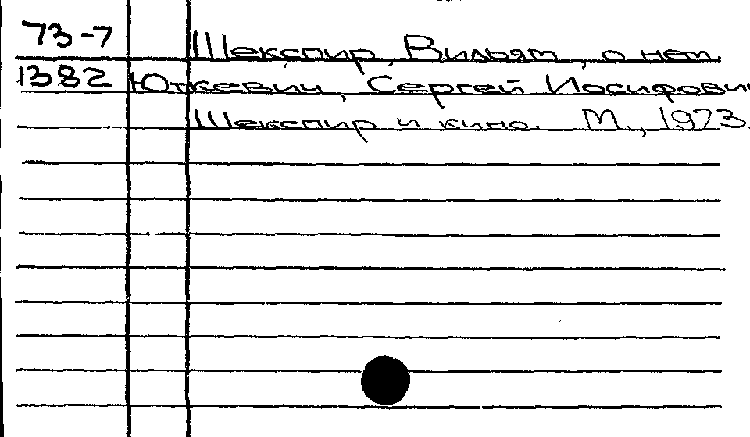 73-7 Шекспир, Вильям, о нем
1382 Юткевич, Сергей Иосифови
Шекспир и кино. М., 1973.